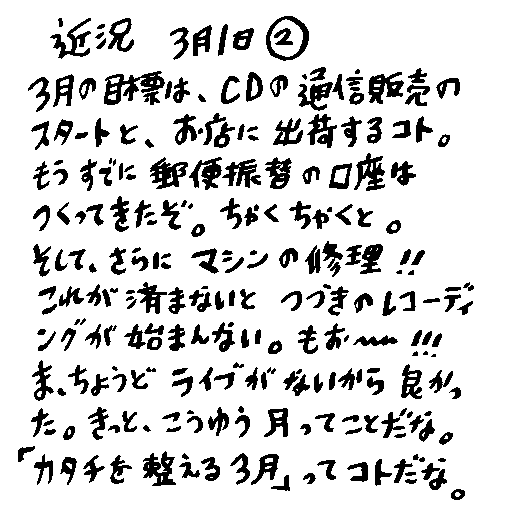 近況 3月1日②
3月の目標は、CDの通信販売の
スタートと、お店に出荷するコト。
もうすでに郵便振替の口座は
つくってきたぞ。ちゃくちゃくと。
そして、さらにマシンの修理!!
これが済まないとつづきのレコーディ
ングが始まんない。もお〜〜!!!
ま、ちょうどライブがないから良かっ
た。きっと、こうゆう月ってことだな。
「カタチを整える3月」ってコトだな。